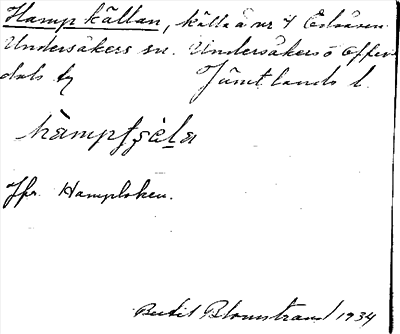 Hampkällan, källa å nr 4 Edsåsen
Undersåkers sn. Undersåkers o Offer-
dals tg Jämtlands l.
hàmpfşèla
Jfr. Hamploken.
Bertil Blomstrand 1934